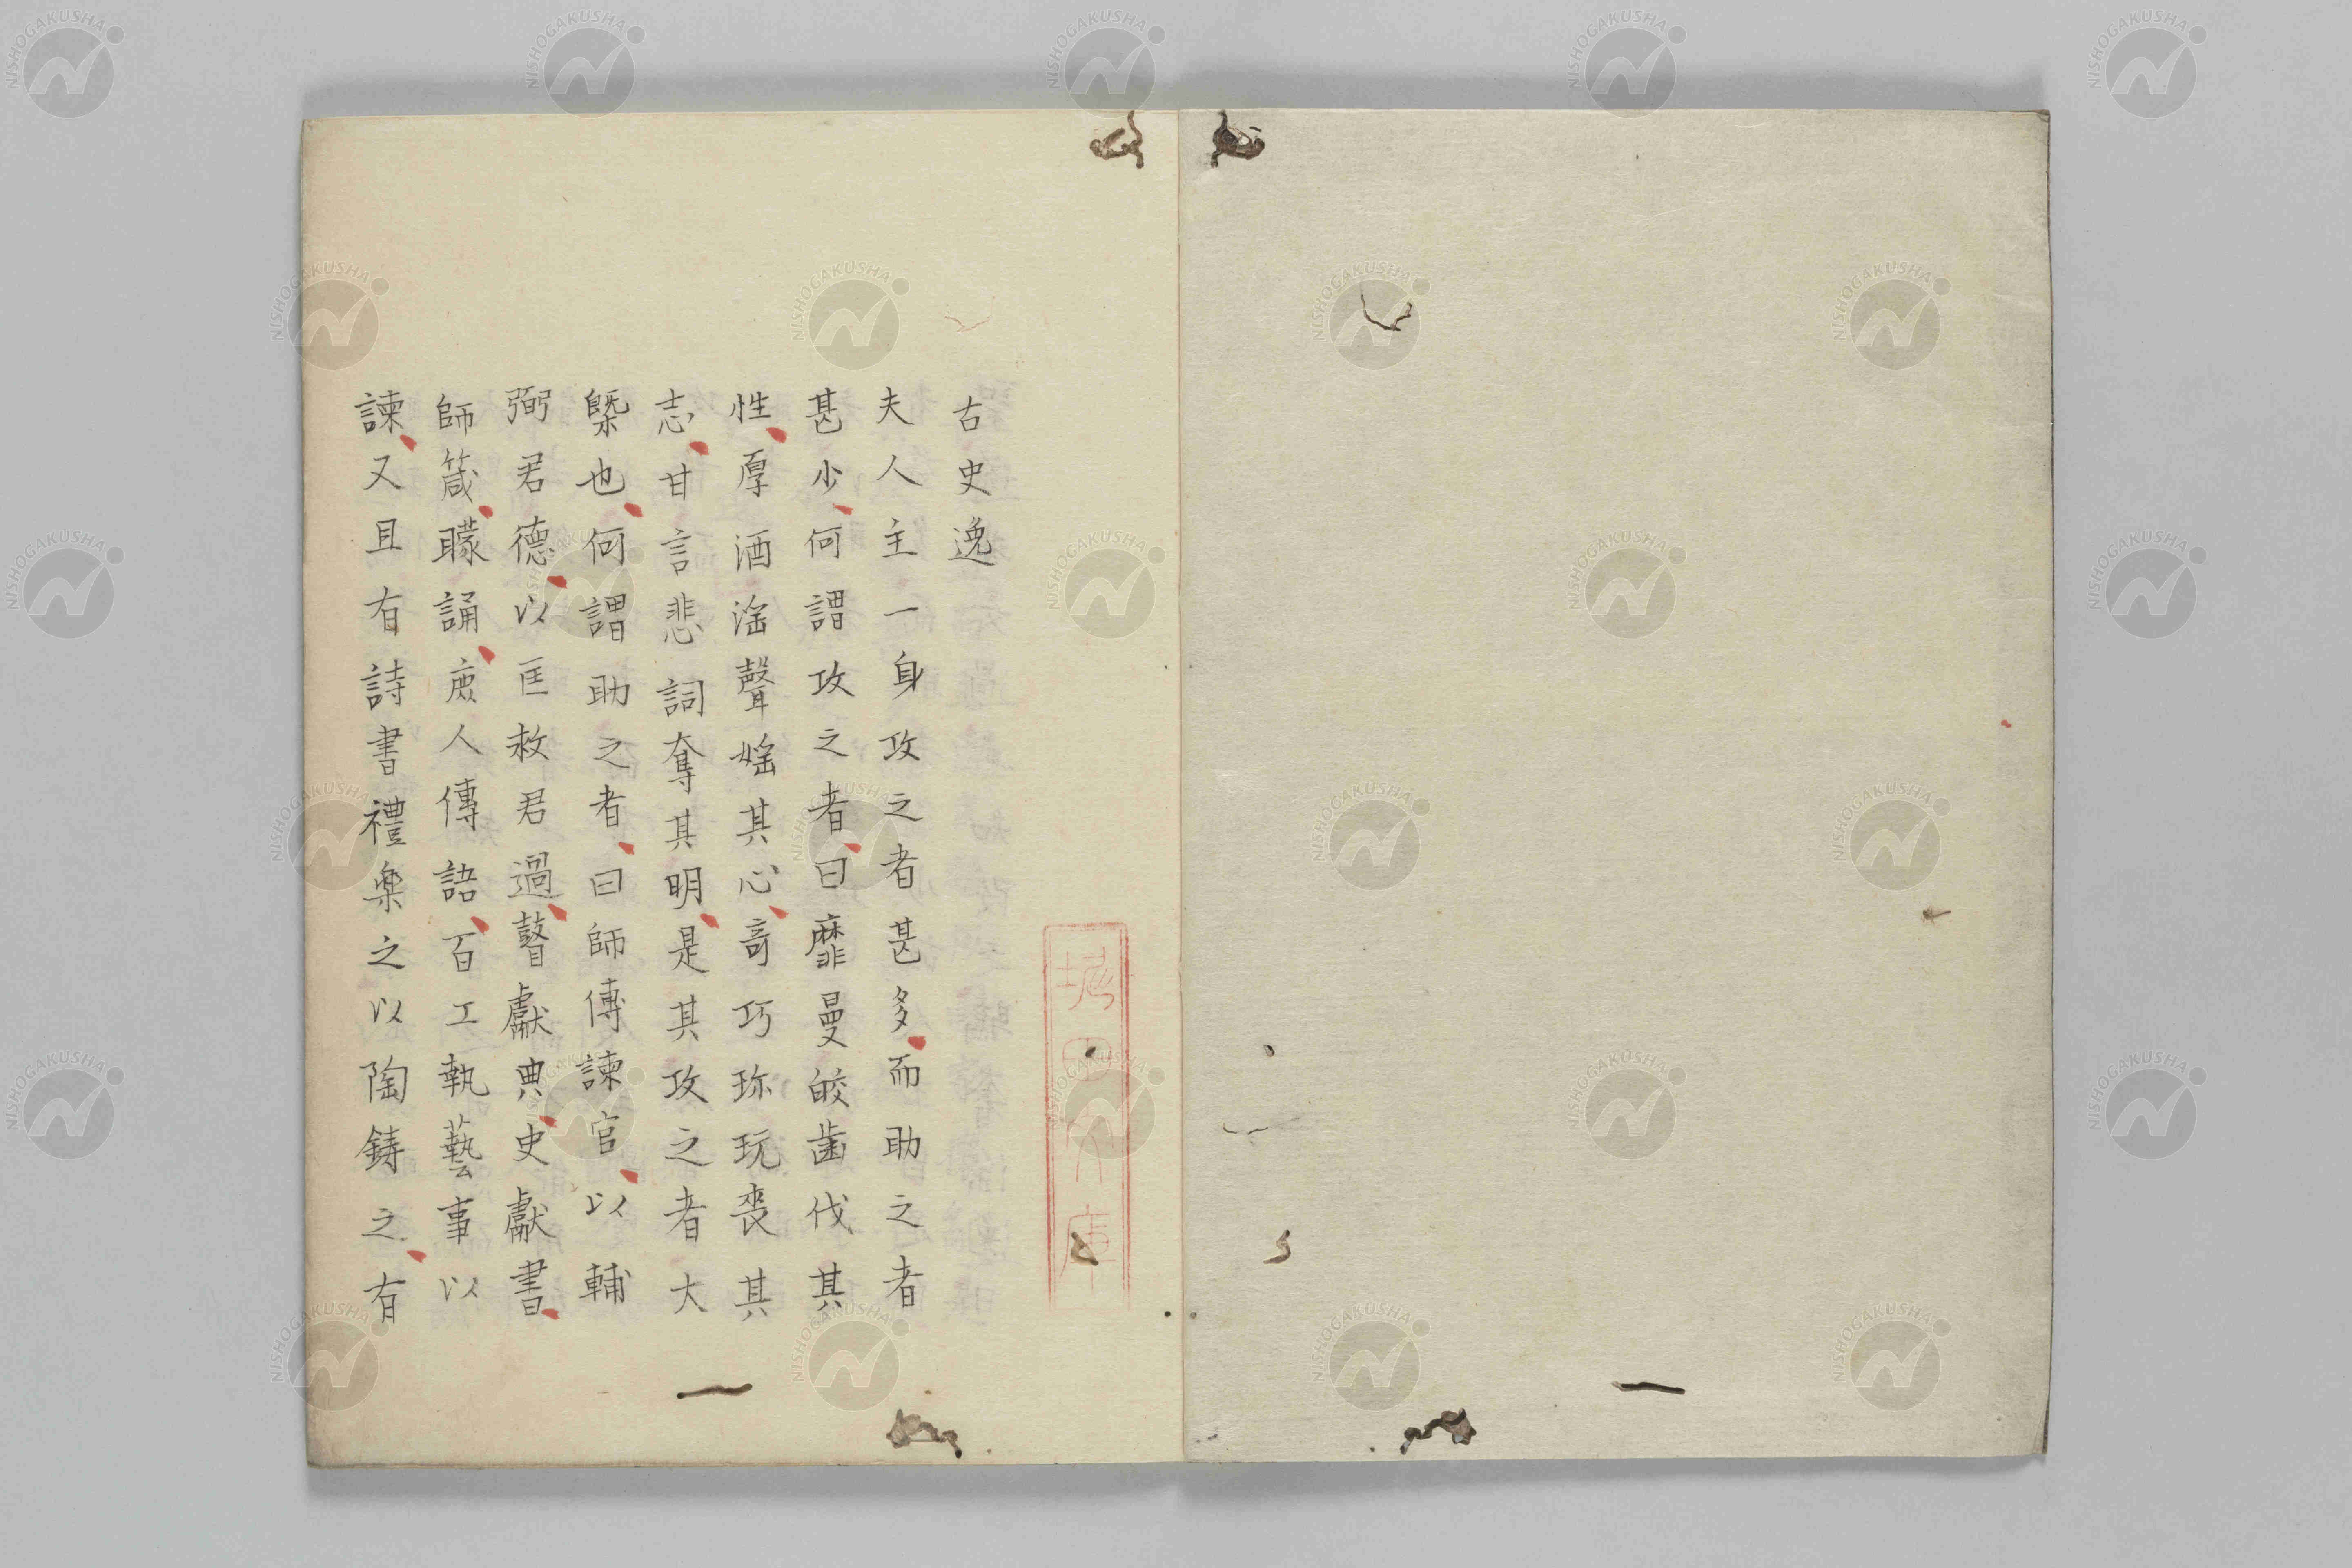 古史逸
夫人主一身攻之者甚多而助之者
甚少何謂攻之者曰靡曼皎齒伐其
性厚酒滛聲婬其心奇巧珎玩喪其
志甘言悲詞奪其明是其攻之者大
槩也何謂助之者曰師傅諫官以輔
弼君德以匡救君過瞽獻典史獻書
師箴矇誦庻人傳語百工執藝事以
諫又且有詩書禮楽之以陶鋳之有
堀田文庫
NISHOGAKUSHA